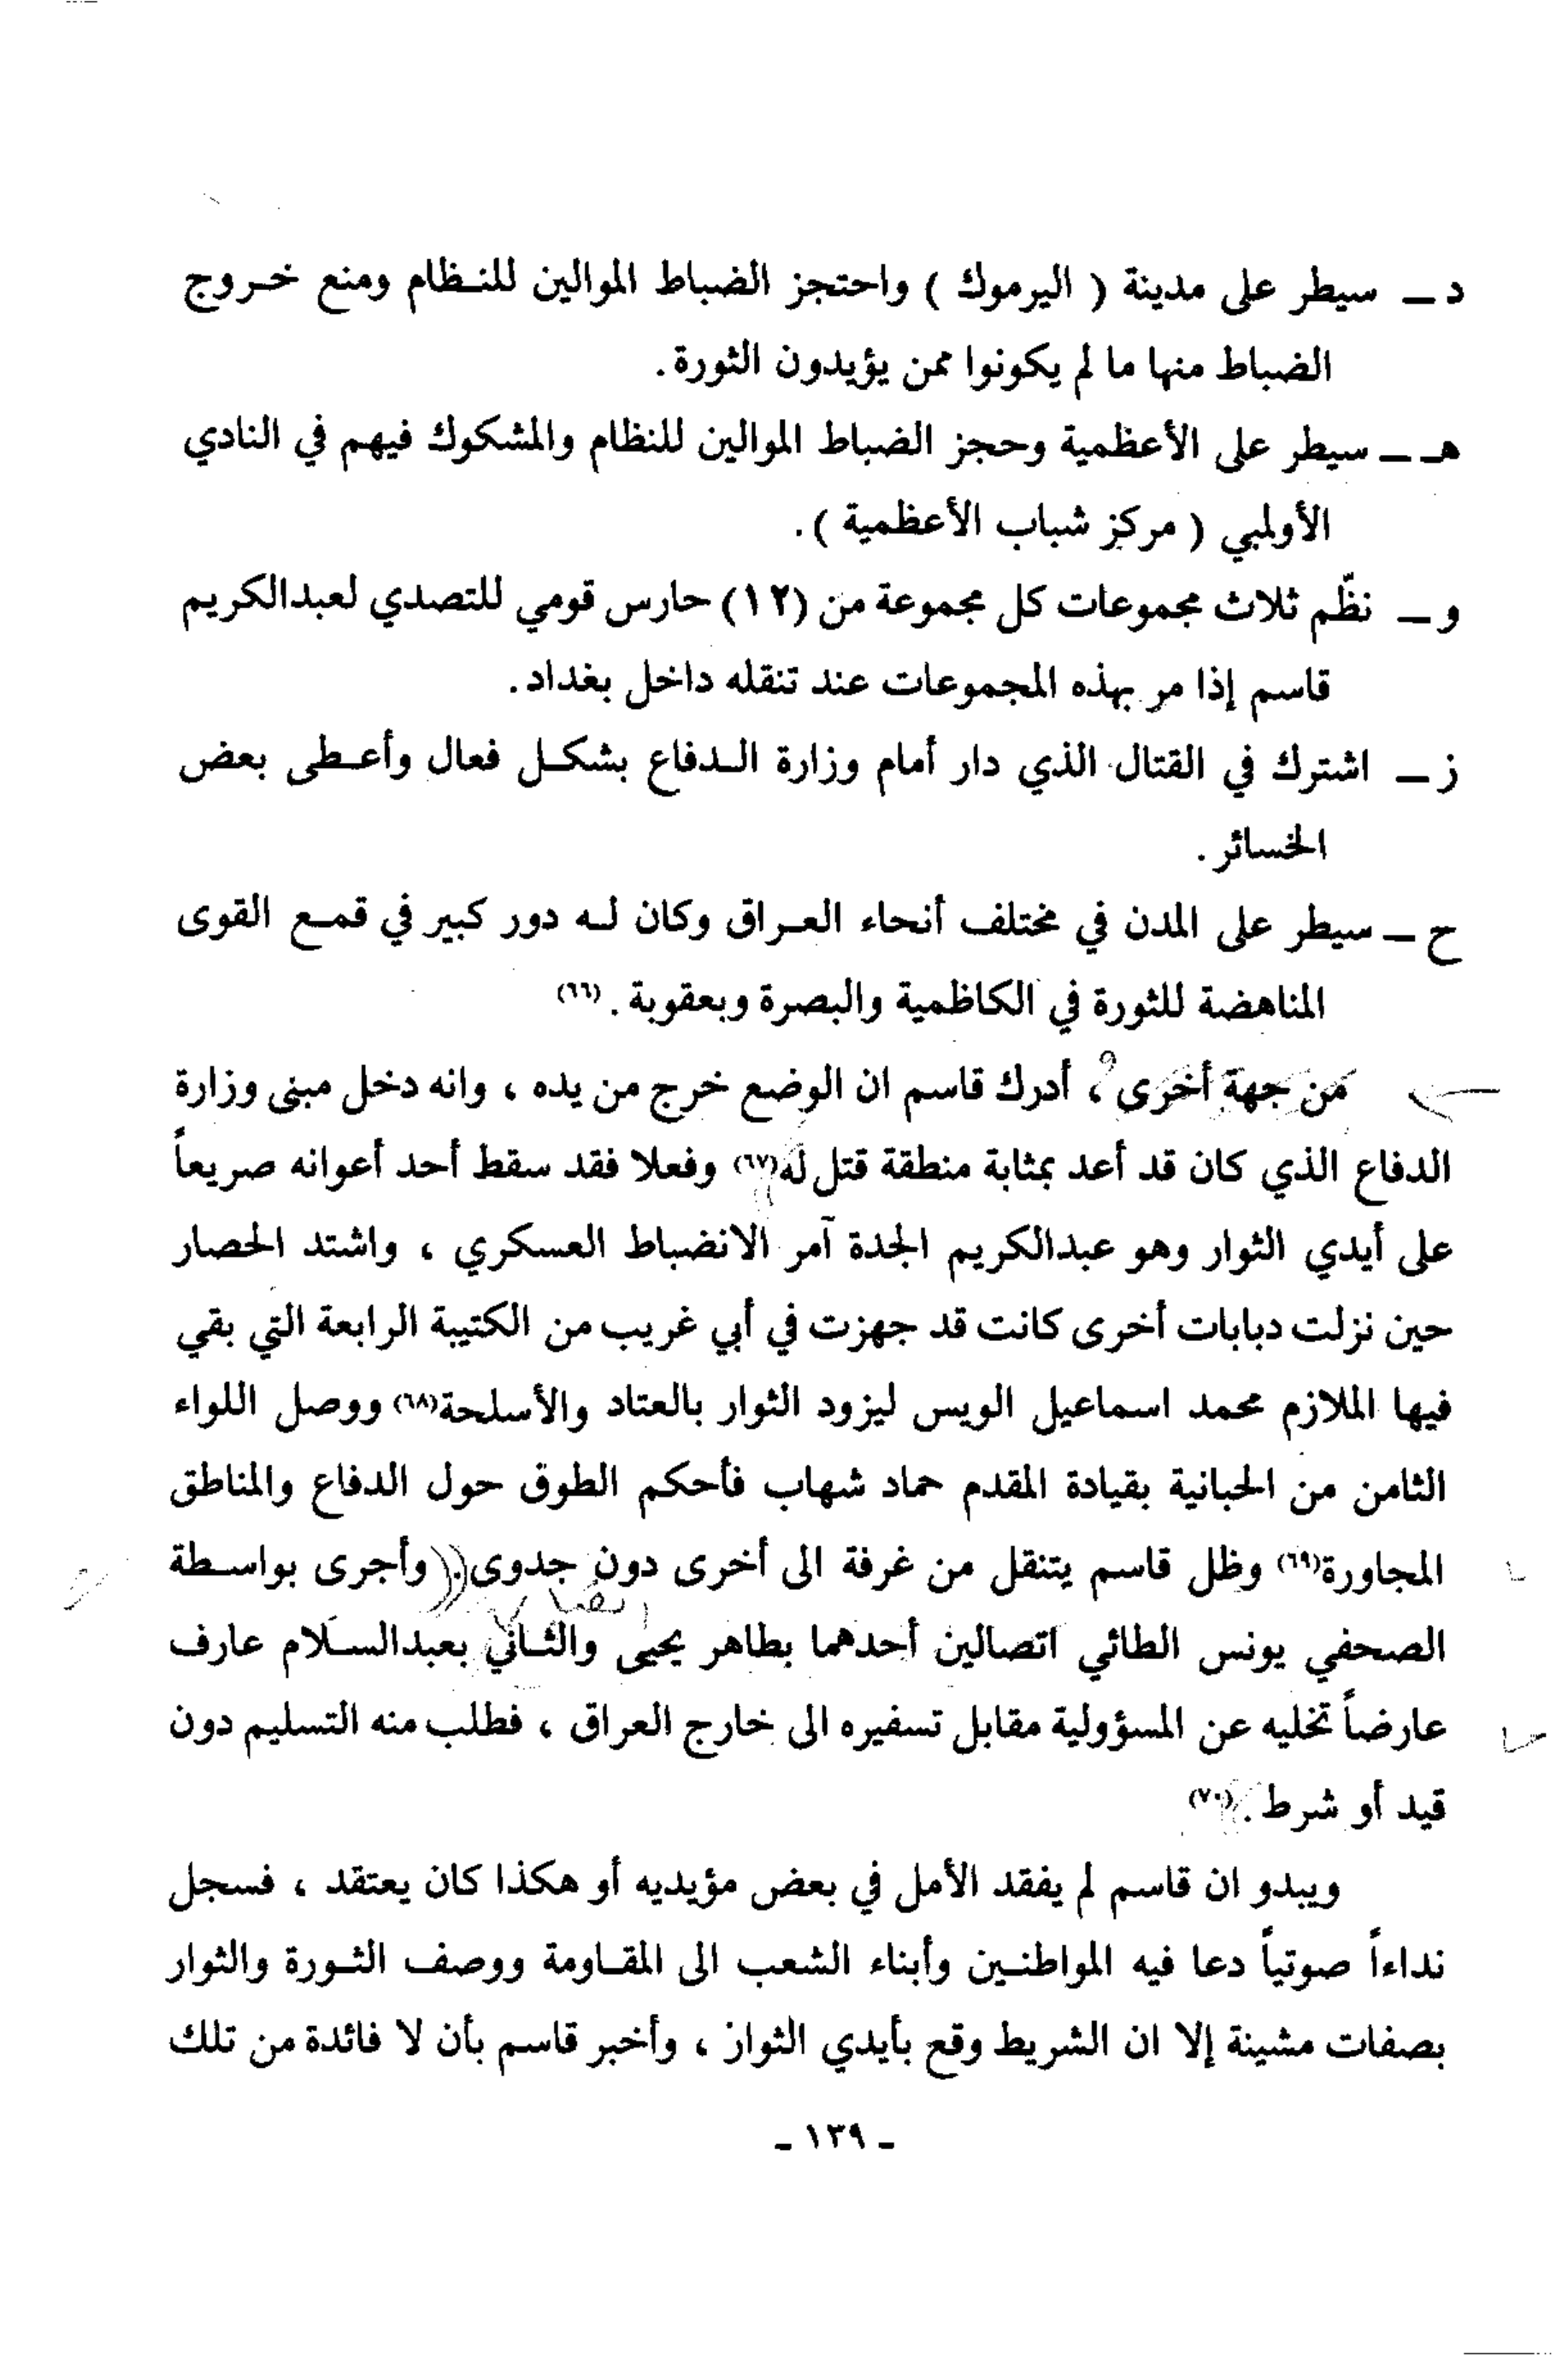 د ــ سيطر على مدينة ( اليرموك ) واحتجز الضباط الموالين للنـظام ومنع خـروج
الضباط منها ما لم يكونوا ممن يؤيدون الثورة .
هـ ــ سيطر على الأعظمية وحجز الضباط الموالين للنظام والمشكوك فيهم في النادي
الأولمبي ( مركز شباب الأعظمية ) .
و ــ نظّم ثلاث مجموعات كل مجموعة من (١٢) حارس قومي للتصدي لعبدالكريم
قاسم إذا مر بهذه المجموعات عند تنقله داخل بغداد .
ز ــ اشترك في القتال الذي دار أمام وزارة الـدفاع بشكـل فعال وأعـطى بعض
الخسائر .
ح ــ سيطر على المدن في مختلف أنحاء العـراق وكان لـه دور كبير في قمـع القوى
المناهضة للثورة في الكاظمية والبصرة وبعقوبة . (٦٦)
من جهة أخرى ، أدرك قاسم ان الوضع خرج من يده ، وانه دخل مبنى وزارة
الدفاع الذي كان قد أعد بمثابة منطقة قتل له(٦٧) وفعلا فقد سقط أحد أعوانه صريعاً
على أيدي الثوار وهو عبدالكريم الجدة آمر الانضباط العسكري ، واشتد الحصار
حين نزلت دبابات أخرى كانت قد جهزت في أبي غريب من الكتيبة الرابعة التي بقي
فيها الملازم محمد اسماعيل الويس ليزود الثوار بالعتاد والأسلحة(٦٨) ووصل اللواء
الثامن من الحبانية بقيادة المقدم حماد شهاب فأحكم الطوق حول الدفاع والمناطق
المجاورة(٦٩) وظل قاسم يتنقل من غرفة الى أخرى دون جدوى . وأجرى بواسـطة
الصحفي يونس الطائي اتصالين أحدهما بطاهر يحيى والثـاني بعبدالسـلام عارف
عارضاً تخليه عن المسؤولية مقابل تسفيره الى خارج العراق ، فطلب منه التسليم دون
قيد أو شرط . (٧٠)
ويبدو ان قاسم لم يفقد الأمل في بعض مؤيديه أو هكذا كان يعتقد ، فسجل
نداءاً صوتياً دعا فيه المواطنـين وأبناء الشعب الى المقـاومة ووصف الثـورة والثوار
بصفات مشينة إلا ان الشريط وقع بأيدي الثوار ، وأخبر قاسم بأن لا فائدة من تلك
ـ ١٣٩ ـ